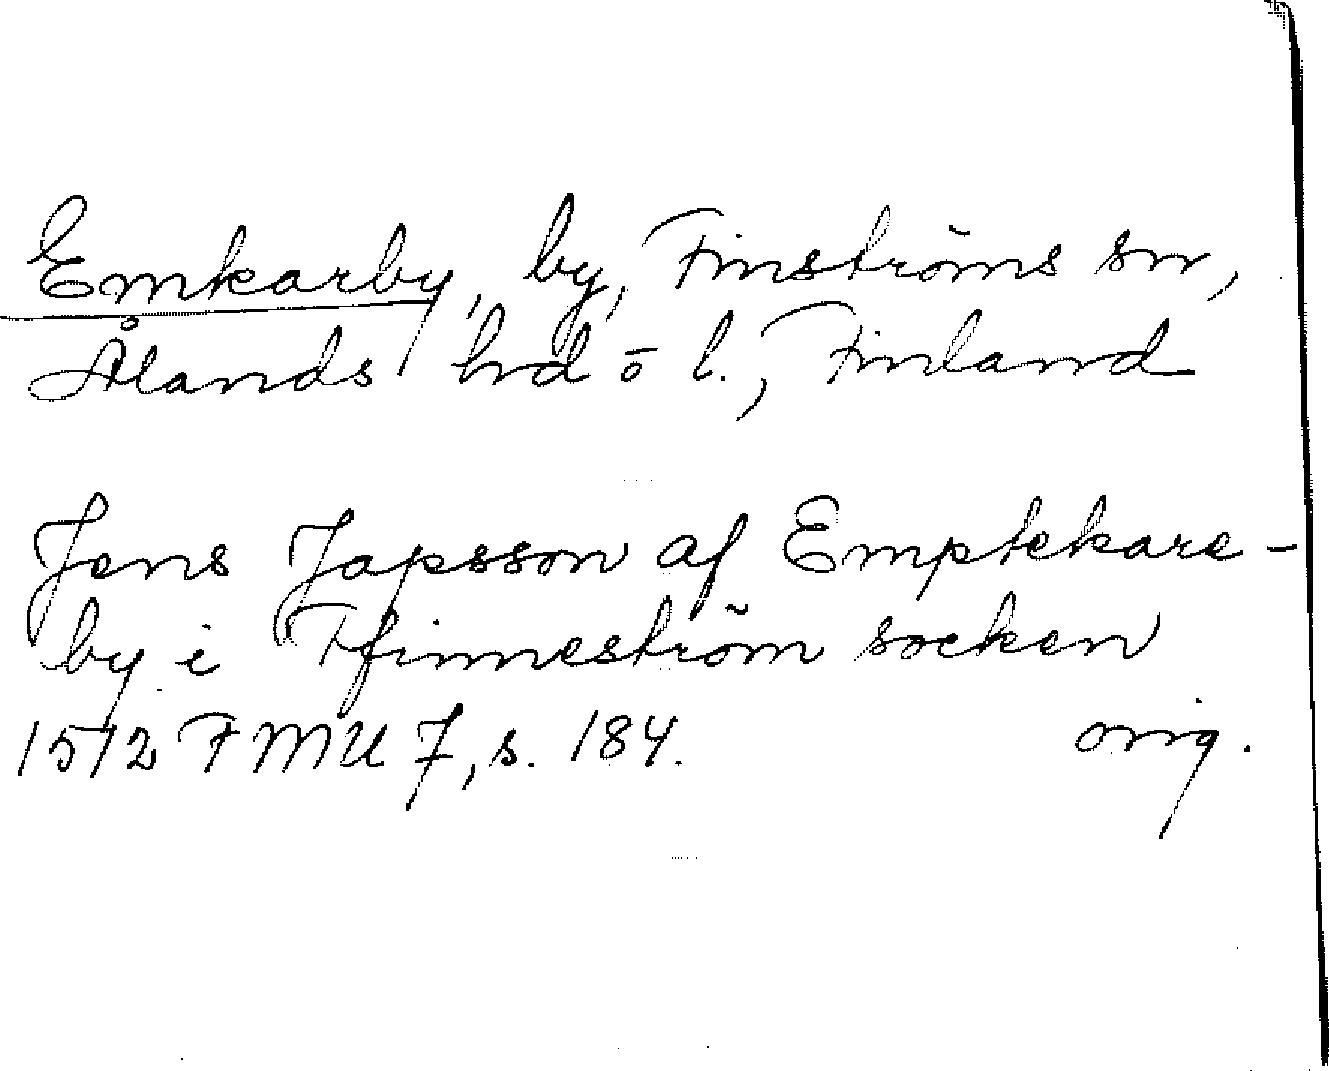 Emkarby, by, Finströms sn,
Ålands hd o l., Finland
Jens Japsson af Emptekare-
by i Ffinneström socken
1512 FMU 7, s. 184. orig.